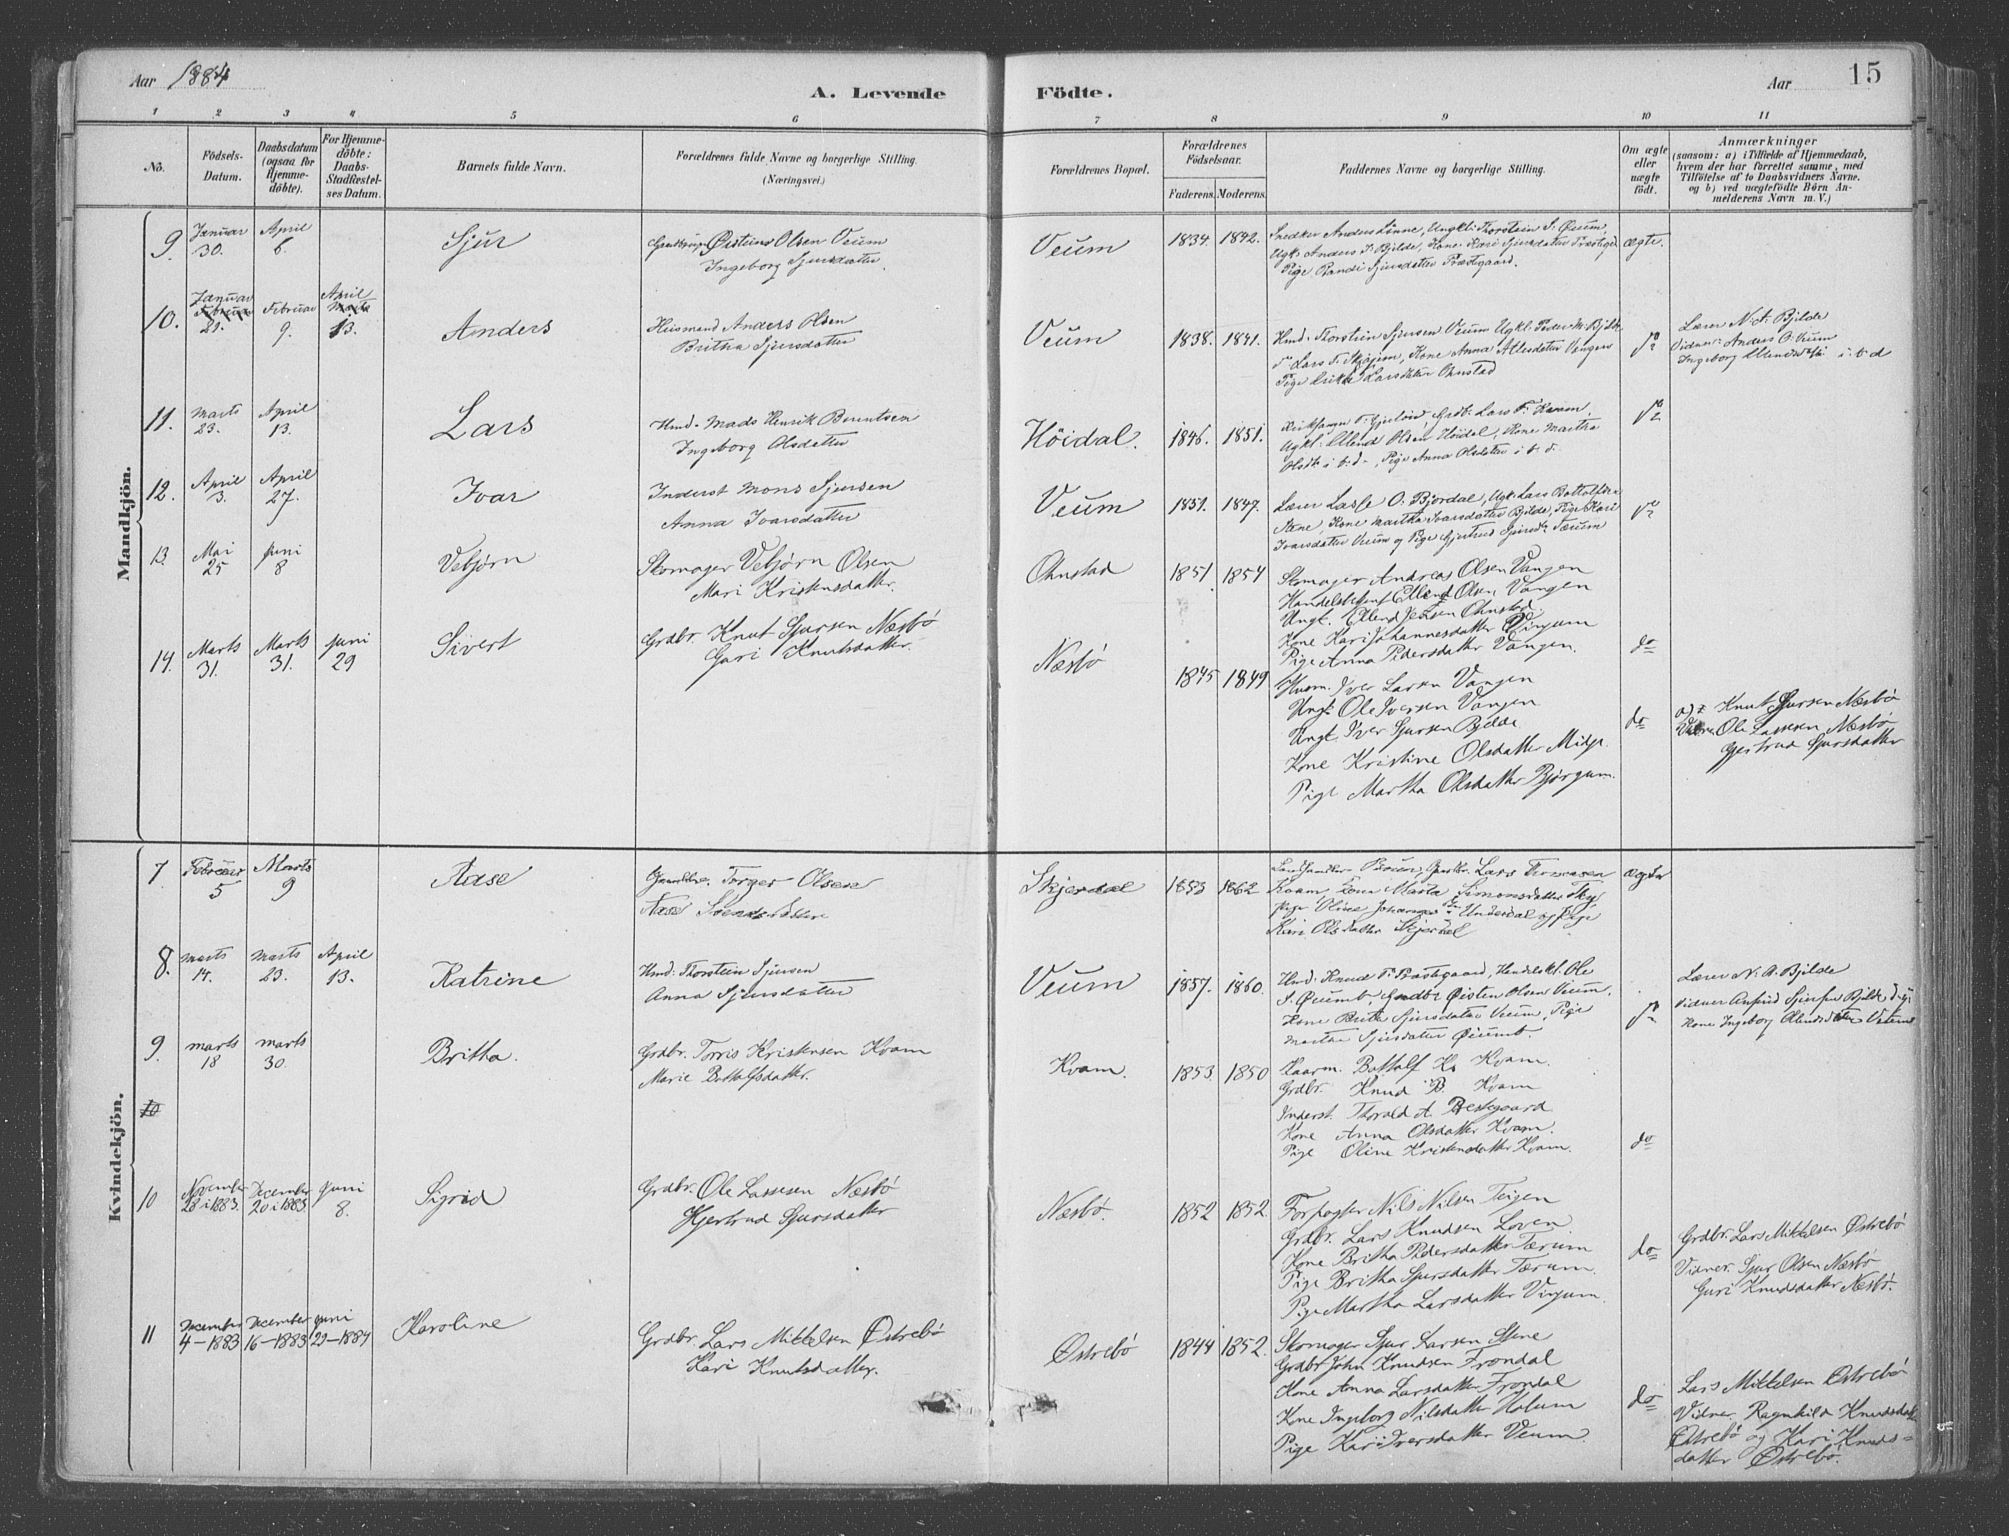 Aar 1884
A. Levende Födte.
Aar
15
1 2 3 4 5 6 7 8 9 10 11
No.
Födsels-Datum.
Daabsdatum (ogsaa for Hjemme-döbte).
For Hjemme-döbte: Daabs-Stadfæstel-ses Datum.
Barnets fulde Navn.
Forældrenes fulde Navne og borgerlige Stilling.
(Næringsvei.)
Forældrenes Bopæl.
Forældrenes Födselsaar.
Faderens. Moderens.
Faddernes Navne og borgerlige Stilling.
Om ægte eller uægte födt.
Anmærkninger
(saasom: a) i Tilfælde af Hjemmedaab,
hvem der har forrettet samme, med
Tilföielse af to Daabsvidners Navne.
og b) ved uægtefödte Börn An-
melderens Navn m. V.)
Mandkjön.
9. Januar 30. April 6. Sjur
Øistein Olsen Veum
Ingeborg Sjursdatter
Veum 1834. 1842.
Snedker Anders Lönne, Ungkl. Thorstein S. Øvum,
Ugk. Anders P. Bjelde, Kone Kari Sjursdatter Præstegd
Pige Randi Sjursdatter Præstegaard.
ægte.
10. Januar 29. Februar 9. April 13. Anders
Husmand Anders Olsen
Britha Sjursdatter
Veum 1838. 1841.
Hmd. Thorstein Sjursen Veum Ugkl. Peder M. Bjelde
do Lars T. Skjæjem, Kone Anna Atlesdatter Vangen
Pige Larsdatter Ohnstad
do
Lærer N. A. Bjelde
Vidner: Anders O. Veum
Ingeborg i. b. d
11. Marts 23. April 13. Lars
Hmd. Mads Henrik Berentsen
Ingeborg Olsdatter
Höidal. 1846. 1851.
Grdb. Lars T. Kvam,
Ugkl. Ellend Olsen Höidal, Kone Martha
Olsdtr i. b. d., Pige Anna Olsdatter i. b. d.
do
12. April 3. April 27. Ivar
Inderst Mons Sjursen
Anna Ivarsdatter
Veum 1851. 1847.
Lærer Lasse O. Bjordal, Ugk. Lars Bottolfsen
Næse Kone Martha Ivarsdatter Bjelde, Pige Kari
Ivarsdatter Veum og Pige Gjertrud Sjursdr Tærum
do
13. Mai 25 Juni 8 Vebjørn
Skomager Vebjørn Olsen
Mari Kristensdatter.
Ohnstad 1851 1854
Skomager Andreas Olsen Vangen
Handelsbetjent Ellend Olsen Vangen
Ungk. Ellend Jensen Ohnstad
Kone Kari Johannesdatter Virjum
Pige Anna Pedersdatter Vangen.
do
14. Marts 31. Marts 31. Juni 29 Sivert
Grdbr. Knut Sjursen Næsbö
Guri Knutsdatter.
Næsbö 1845 1849
Husm. Iver Larsen Vangen
Ungk. Ole Iversen Vangen
Ungk. Iver Sjursen Bjelde
Kone Kristine Olsdatter Midje
Pige Martha Olsdatter Bjørgum.
do
a) Knut Sjursen Næsbö
Vidner Ole Lassesen Næsbö
Gjertrud Sjursdatter
Kvindekjön.
7. Februar 5 Marts 9 Aase
Torger Olsen
Aase Svendsdatter
Skjerdal 1853 1862
Lars Thomasen
Kvam Kone Marta Simonsdatter
Pige Oline Undredal og Pige
Kari Olsdatter Skjerdal
ægte
8. Marts 14. Marts 23. April 13. Katrine
Hmd. Thorstein Sjursen
Anna Sjursdatter
Veum 1857. 1860.
Hmd. Knud P. Præstegaard, Handelskl. Ole
S. Øvumb, Grdbr Øisten Olsen Veum,
Kone Brita Sjursdatter Veum, Pige
Martha Sjursdatter Øvumb.
do
Lærer N. A. Bjelde
Vidner Sjursen Bjelde
Kone Ingeborg Veum
9. Marts 18 Marts 30. Britha.
Grdbr. Torris Kristensen Kvam
Marie Bottolfsdatter.
Kvam. 1853. 1850
Kaarm. Bottolf K. Kvam.
Grdbr. Knud B. Kvam
Inderst. Thorald A. Prestegaard
Kone Anna Olsdatter Kvam.
Pige Oline Kristensdatter Kvam.
do
10
10 November 28 i 1883. December 20 i 1883. Juni 8. Sigrid
Grdbr. Ole Lassesen Næsbö
Hjertrud Sjursdatter
Næsbö. 1852 1852.
Forpagter Nils Nilsen Teigen
Grdbr. Lars Knudsen Loven
Kone Britha Pedersdatter Tærum
Pige Britha Sjursdatter Tærum.
Pige Martha Larsdatter Virjum.
do
Grdbr. Lars Mikkelsen Østrebö
Vidner. Sjur Olsen Næsbö
Guri Knudsdatter Næsbö.
11 December 4-1883 December 16-1883 Juni 29-1884 Karoline
Grdbr. Lars Mikkelsen Østrebö
Kari Knutsdatter.
Østrebö 1844 1852.
Skomager Sjur Larsen Stene
Grdbr John Knudsen Frondal
Kone Anna Larsdatter Frondal
Kone Ingeborg Nilsdatter Holum
Pige Kari Iversdatter Veum.
do
Lars Mikkelsen Østrebö
Vidner. Ragnhild Knudsdatt
Østrebö og Kari Knuds-
datter Østrebö.